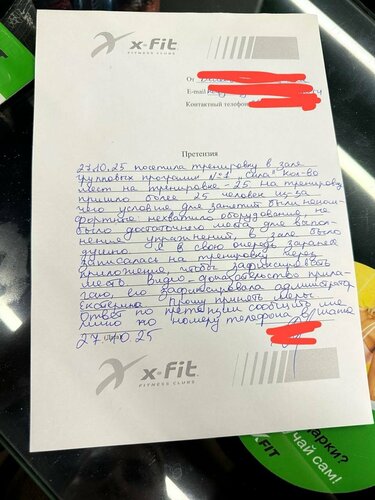 x-fit
FITNESS CLUBS
От
E-mail
Контактный телефон
Претензия
27.10.25 посетила тренировку в зале
групповых программ №1 "Сила". Кол-во
мест на тренировке - 25. На тренировку
пришло более 25 человек из-за
чего условия для занятий были неком-
фортные нехватило оборудования, не
было достаточного места для выпол-
нения упражнений, в зале было
душно. Я в свою очередь заранее
записалась на тренировку через
приложение, чтобы зафиксировать
место. Видео-доказательство прила-
гаю, его зафиксировала администратор
Екатерина. Прошу принять меры.
Ответ по претензии сообщить мне
лично по номеру телефона
27.10.25
x-fit
FITNESS CLUBS
арки?
чай сам!
FIT